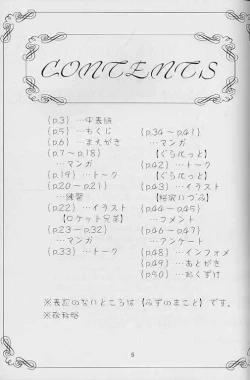 CONTENTS
(p.3) …中表紙
(p.5) …もくじ
(p.6) …まえがき
(p.7～p.18)
…マンガ
(p.19) …トーク
(p.20～p.21)
…練習
(p.22) …イラスト
【ロケット兄弟】
(p.23～p.32)
…マンガ
(p.33) …トーク
(p.34～p.41)
…マンガ
【ぐらたっと】
(p.42) …トーク
【ぐらたっと】
(p.43) …イラスト
(p.44～p.45)
…コメント
(p.46～p.47)
…アンケート
(p.48) …インフォメ
(p.49) …あとがき
(p.50) …おくづけ
※表記のないところは【みずのまこと】です。
※敬称略
5